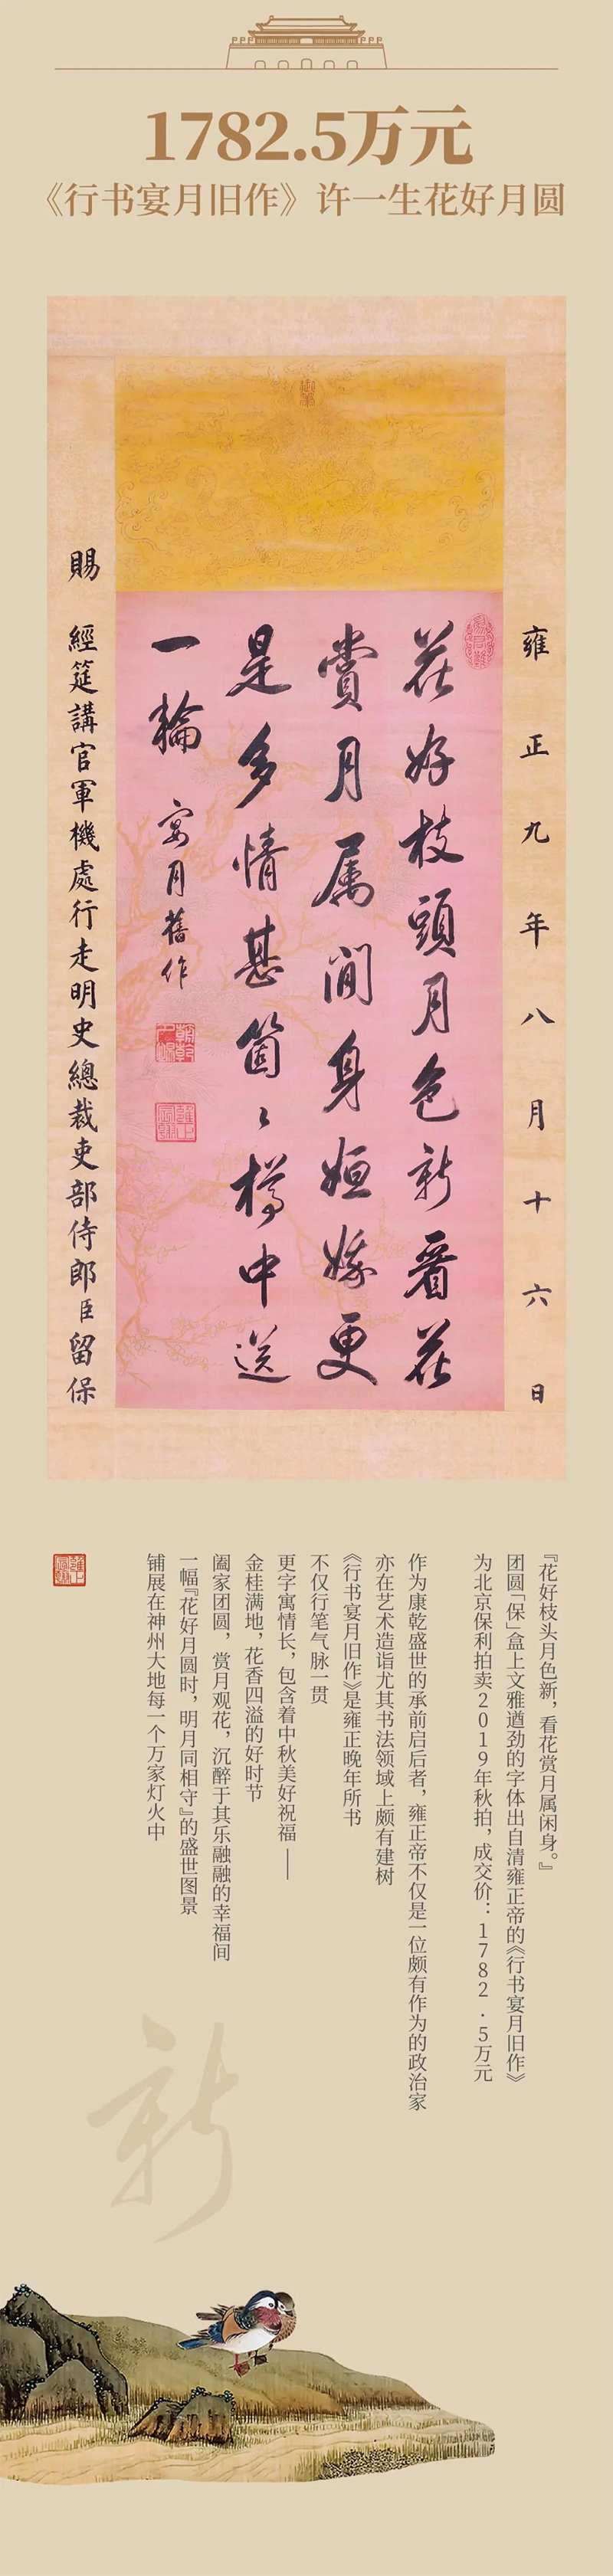 1782.5万元
《行书宴月旧作》许一生花好月圆
雍正九年八月十六日
花好枝頭月色新看花
賞月属閒身姮娥更
是多情甚箇〻樽中送
一輪 宴月舊作
賜 經筵講官軍機處行走明史總裁吏部侍郎臣留保
『花好枝头月色新，看花赏月属闲身。』
团圆「保」盒上文雅遒劲的字体出自清雍正帝的《行书宴月旧作》
为北京保利拍卖2019年秋拍，成交价：1782.5万元
作为康乾盛世的承前启后者，雍正帝不仅是一位颇有作为的政治家
亦在艺术造诣尤其书法领域上颇有建树
《行书宴月旧作》是雍正晚年所书
不仅行笔气脉一贯
更字寓情长，包含着中秋美好祝福——
金桂满地，花香四溢的好时节
阖家团圆，赏月观花，沉醉于其乐融融的幸福间
一幅『花好月圆时，明月同相守』的盛世图景
铺展在神州大地每一个万家灯火中
新